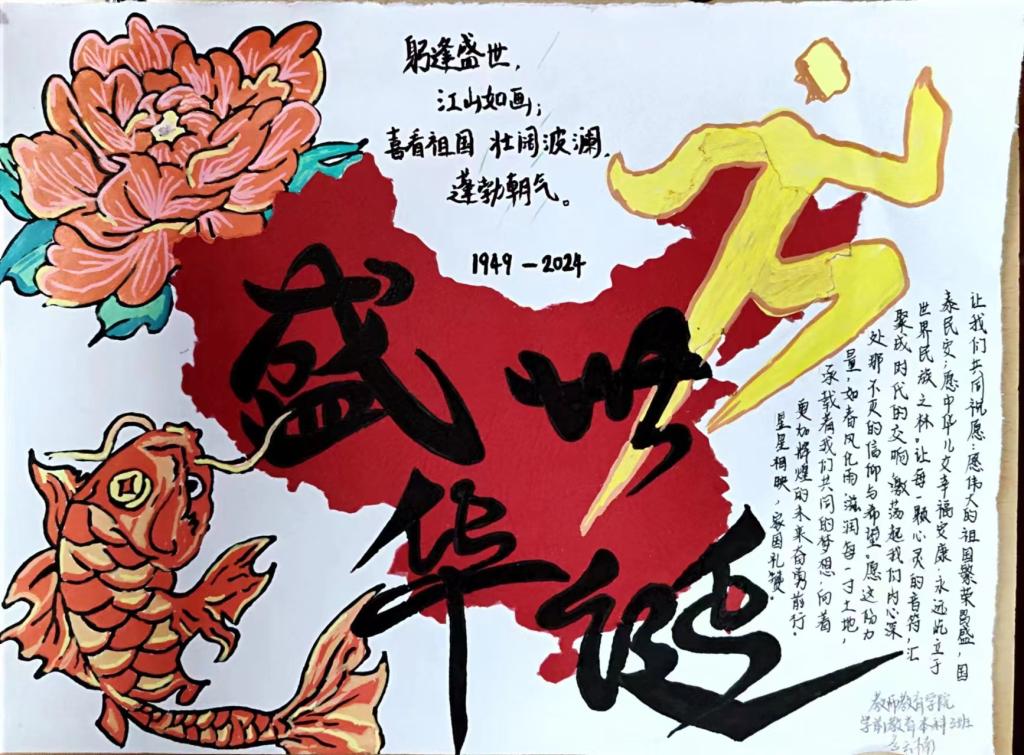 躬逢盛世，
江山如画；
喜看祖国 壮阔波澜，
蓬勃朝气。
1949-2024
盛世
华诞
让我们共同祝愿，愿伟大的祖国繁荣昌盛，国
泰民安；愿中华儿女幸福安康，永远屹立于
世界民族之林。让每一颗心灵的音符，汇
聚成时代的交响，激荡起我们内心深
处那不灭的信仰与希望。愿这份力
量，如春风化雨，滋润每一寸土地，
承载着我们共同的梦想，向着
更加辉煌的未来奋勇前行。
星星相映，家国礼赞。
教师教育学院
学前教育本科3班